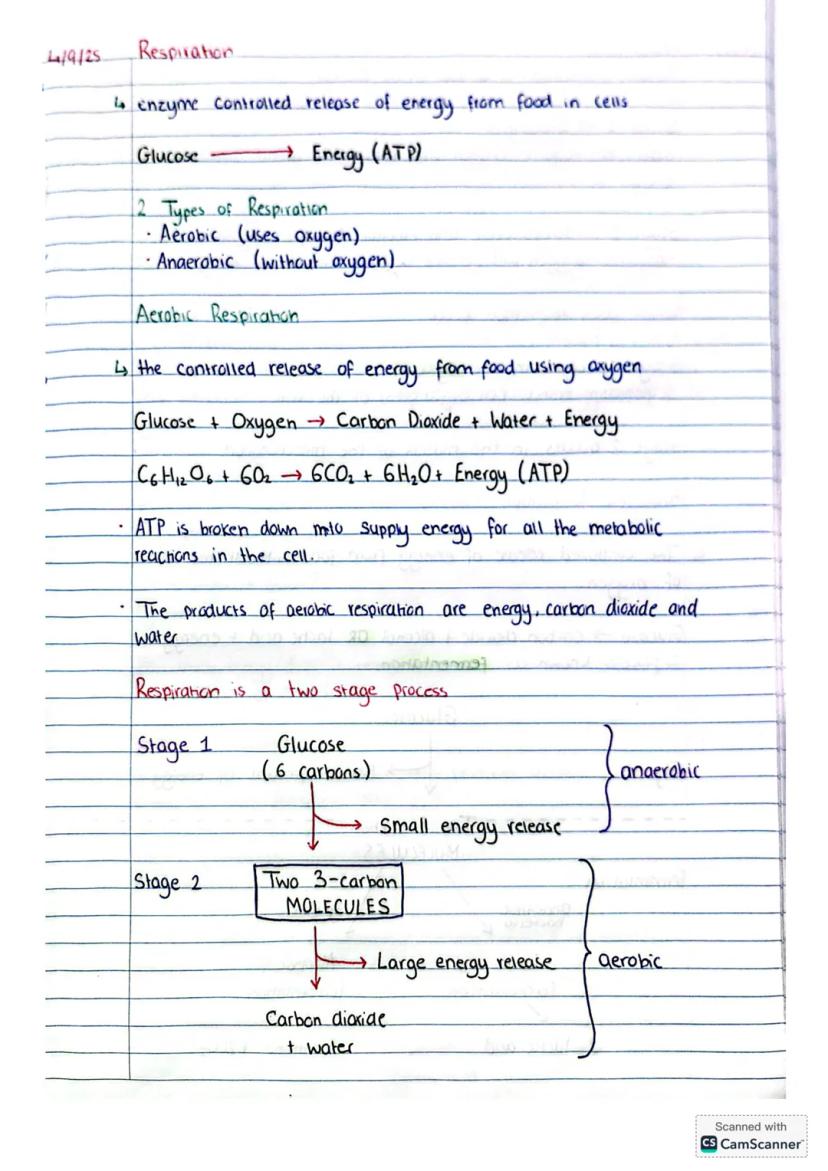 4/9/25 Respiration
↳ enzyme controlled release of energy from food in cells
Glucose ⟶ Energy (ATP)
2 Types of Respiration
· Aerobic (uses oxygen)
· Anaerobic (without oxygen)
Aerobic Respiration
↳ the controlled release of energy from food using oxygen
Glucose + Oxygen → Carbon Dioxide + Water + Energy
C₆H₁₂O₆ + 6O₂ → 6CO₂ + 6H₂O + Energy (ATP)
· ATP is broken down supply energy for all the metabolic
reactions in the cell.
· The products of aerobic respiration are energy, carbon dioxide and
water
Respiration is a two stage process
Stage 1 Glucose
(6 carbons) anaerobic
→ Small energy release
Stage 2 Two 3-carbon
MOLECULES
→ Large energy release aerobic
Carbon dioxide
+ water
Scanned with
CS CamScanner